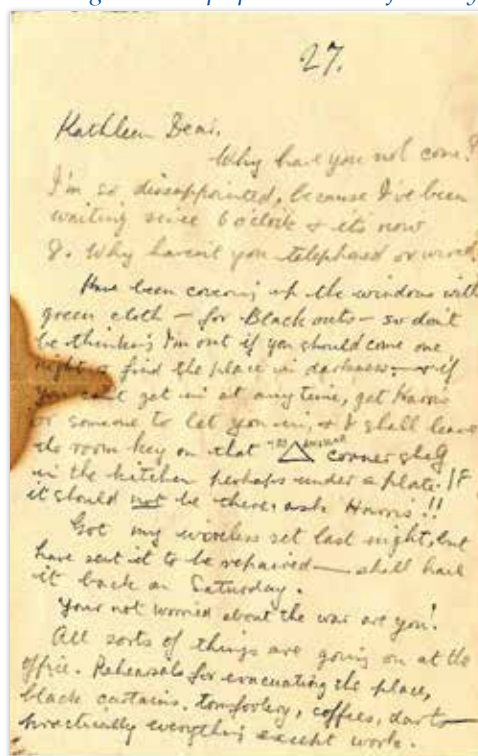 27.
Kathleen Dear.
Why have you not come?
I'm so dissappointed, because I've been
waiting since 6 oclock & its now
8. Why haven't you telephoned or wired?
Have been covering up the windows with
green cloth – for Black outs – so don't
be thinking I'm out if you should come one
night & find the place in darkness. – & if
you can't get in at any time, get Harris
or someone to let you in, & I shall leave
the room key on that corner shelf
in the kitchen perhaps under a plate. IF
it should not be there, ask Harris!!
Got my wireless set last night, but
have sent it to be repaired — shall have
it back on Saturday.
Your not worried about the war are you!
All sorts of things are going on at the
office. Rehearsals for evacuating the place,
black curtains, tomfoolery, coffees, darts —
practically everything except work.